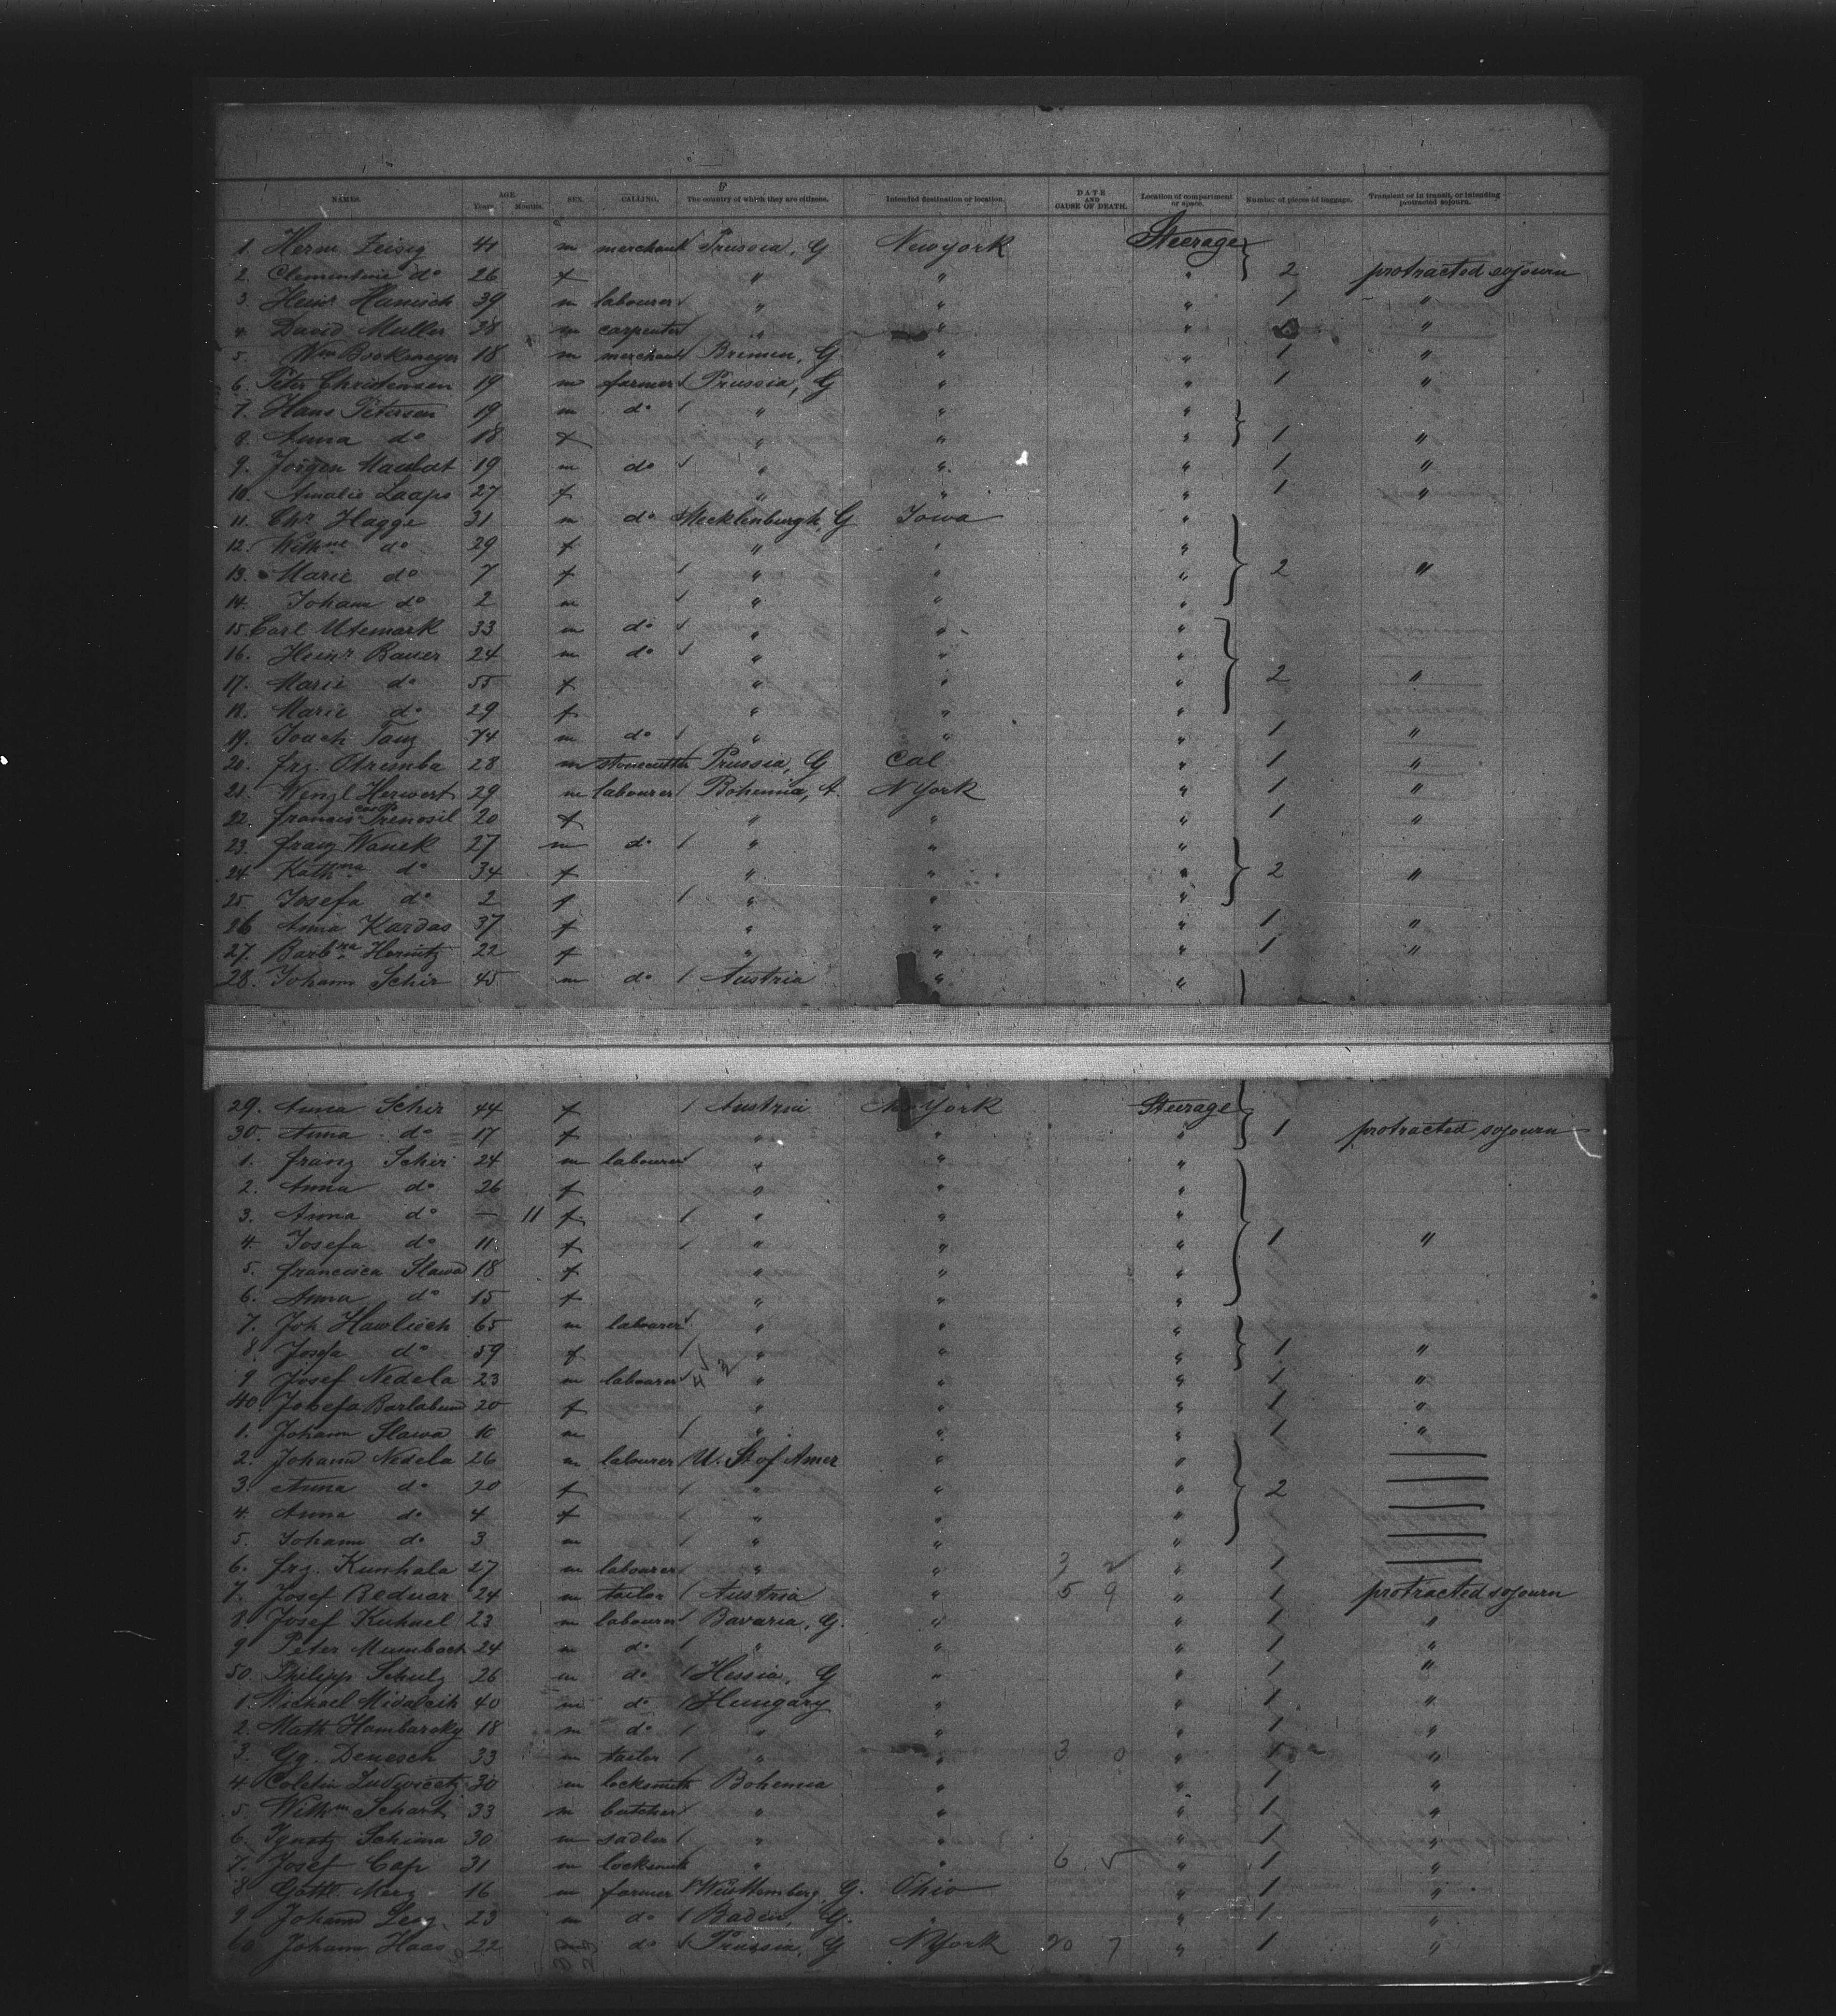 NAMES. AGE. Years. Months. SEX. CALLING. The country of which they are citizens. Intended destination or location. DATE AND CAUSE OF DEATH. Location of compartment or space. Number of pieces of baggage. Transient or in transit, or intending protracted sojourn.
1. Herm Zeisig 41 m merchant Prussia, G Newyork Steerage
2. Clementine do 26 f " " " 2 protracted sojourn
3. Heinr Hanisch 39 m labourer " " " 1 "
4. David Muller 38 m carpenter " " " "
5. Wm Bookmeyer 18 m merchant Bremen, G " " 1 "
6. Peter Christensen 19 m farmer Prussia, G " " 1 "
7. Hans Petersen 19 m do " " "
8. Anna do 18 f " " " 1 "
9. Jörgen 19 m do " " " 1 "
10. Amalie Laaps 27 f " " " 1 "
11. Chr Hagge 31 m do Mecklenburgh, G Iowa "
12. Wilhne do 29 f " " "
13. Marie do 7 f " " " 2 "
14. Johann do 2 m " " "
15. Carl Utemark 33 m do " " "
16. Heinr Bauer 24 m do " " "
17. Marie do 55 f " " " 2 "
18. Marie do 29 f " " "
19. Joach Tanz 74 m do " " " 1 "
20. frz. Otremba 28 m stonecutter Prussia, G Cal " 1 "
21. Wenzl Herwert 29 m labourer Bohemia, A. N York " 1 "
22. Prenosil 20 f " " " 1 "
23. franz Wanek 27 m do " " "
24. Kathna do 34 f " " " 2 "
25. Josefa do 2 f " " "
26. Anna Kardas 37 f " " " 1 "
27. Barbra Hornitz 22 f " " " 1 "
28. Johann Schir 45 m do Austria " "
29. Anna Schir 44 f Austria New York Steerage
30. Anna do 17 f " " " 1 protracted sojourn
1. franz Schir 24 m labourer " " "
2. Anna do 26 f " " "
3. Anna do — 11 f " " "
4. Josefa do 11 f " " " 1 "
5. francisca Slawa 18 f " " "
6. Anna do 15 f " " "
7. Joh Hawlisch 65 m labourer " " "
8. Josefa do 59 f " " " 1 "
9. Josef Nedela 23 m labourer " " " 1 "
40. Josefa 20 f " " " 1 "
1. Johann Slawa 10 m " " " 1 "
2. Johann Nedela 26 m labourer U. St of Amer " "
3. Anna do 20 f " " " 2
4. Anna do 4 f " " "
5. Johann do 3 m " " "
6. frz. Kunhala 27 m labourer " " 3 2 " 1
7. Josef Bednar 24 m tailor Austria " 5 9 " 1 protracted sojourn
8. Josef Kuhnel 23 m labourer Bavaria, G. " " 1 "
9 Peter Mumbach 24 m do " " " 1 "
50. Philipp Schulz 26 m do Hessia, G " " 1 "
1. Michael Midalcik 40 m do Hungary " " 1 "
2. Math Hambarsky 18 m do " " " 1 "
3. Gg. Denesch 33 m tailor " " 3 0 " 1 "
4. 30 m locksmith Bohemia " " 1 "
5. Wilhm Schart 33 m butcher " " " 1 "
6. Ignatz Schima 30 m sadler " " " 1 "
7. Josef Cap 31 m locksmith " " 6 5 " 1 "
8 Gottl. Merz 16 m farmer Württemberg, G. Ohio " 1 "
9 Johann 23 m do Baden, G. " " 1 "
60 Johann Haas 22 do Prussia, G N York 20 7 " 1 "